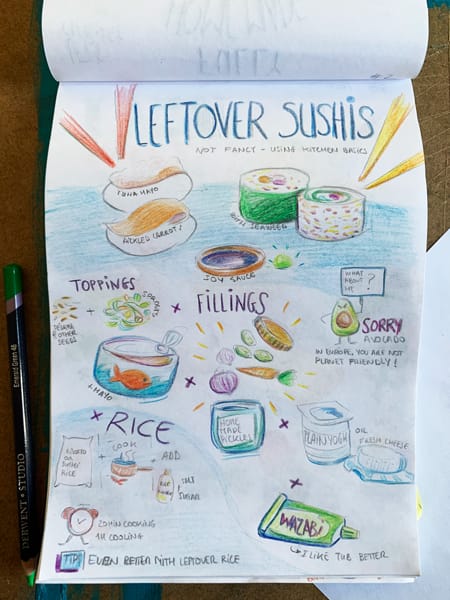 LEFTOVER SUSHIS
NOT FANCY - USING KITCHEN BASICS
TUNA MAYO
PICKLED CARROTS
WITH SEAWEED
SOY SAUCE
TOPPINGS
SESAME
& OTHER
SEEDS
+
SPROUTS
× FILLINGS
WHAT
ABOUT
ME
?
SORRY
AVOCADO
IN EUROPE, YOU ARE NOT
PLANET FRIENDLY!
+ MAYO
×
× RICE
HOME
MADE
PICKLES
×
PLAIN YOGH
OR
FRESH CHEESE
RISOTTO
OR
SUSHI
RICE
+
COOK
IT
+
ADD
+ SALT
SUGAR
20 MIN COOKING
1H COOLING
×
WAZABI
I LIKE TUB BETTER
TIP EVEN BETTER WITH LEFTOVER RICE
DERWENT • STUDIO
Emerald Green 46